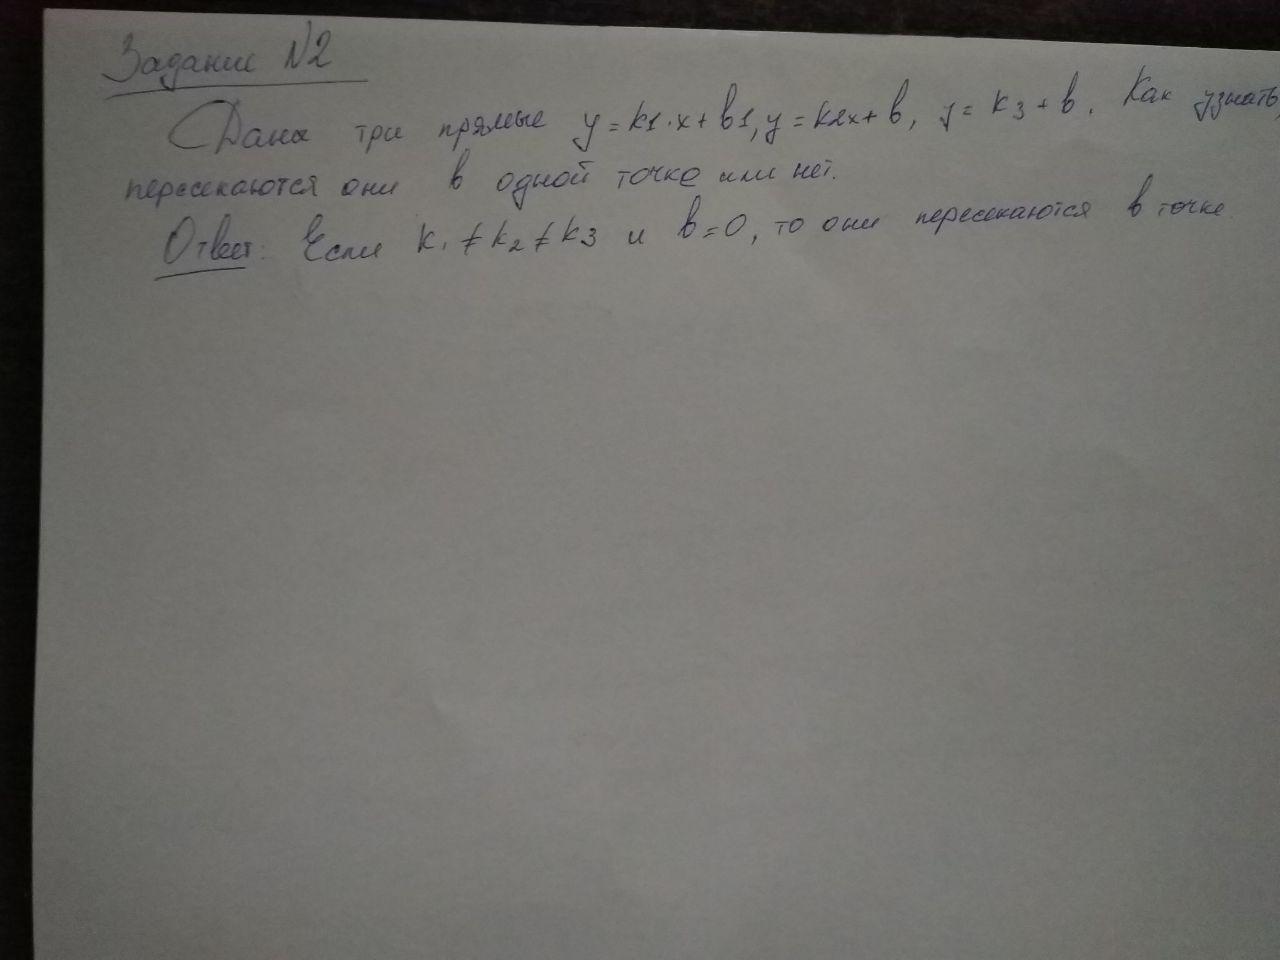 Задание №2
Даны три прямые y=k1·x+b1, y=k2x+b, y=k3+b. Как узнать,
пересекаются они в одной точке или нет.
Ответ: Если k1≠k2≠k3 и b=0, то они пересекаются в точке